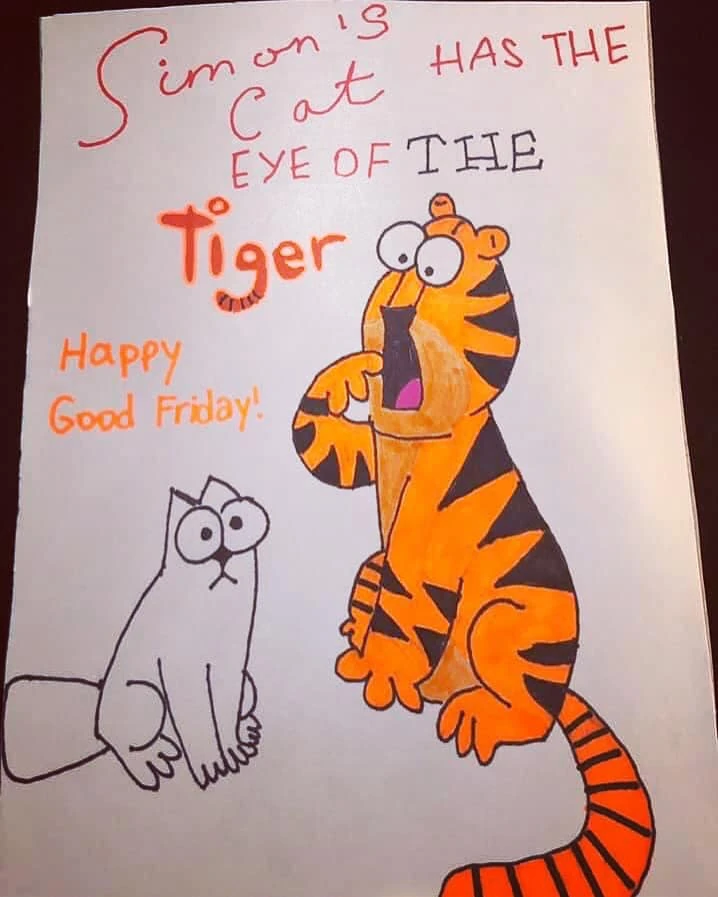 Simon's
Cat HAS THE
EYE OF THE
Tiger
Happy
Good Friday!